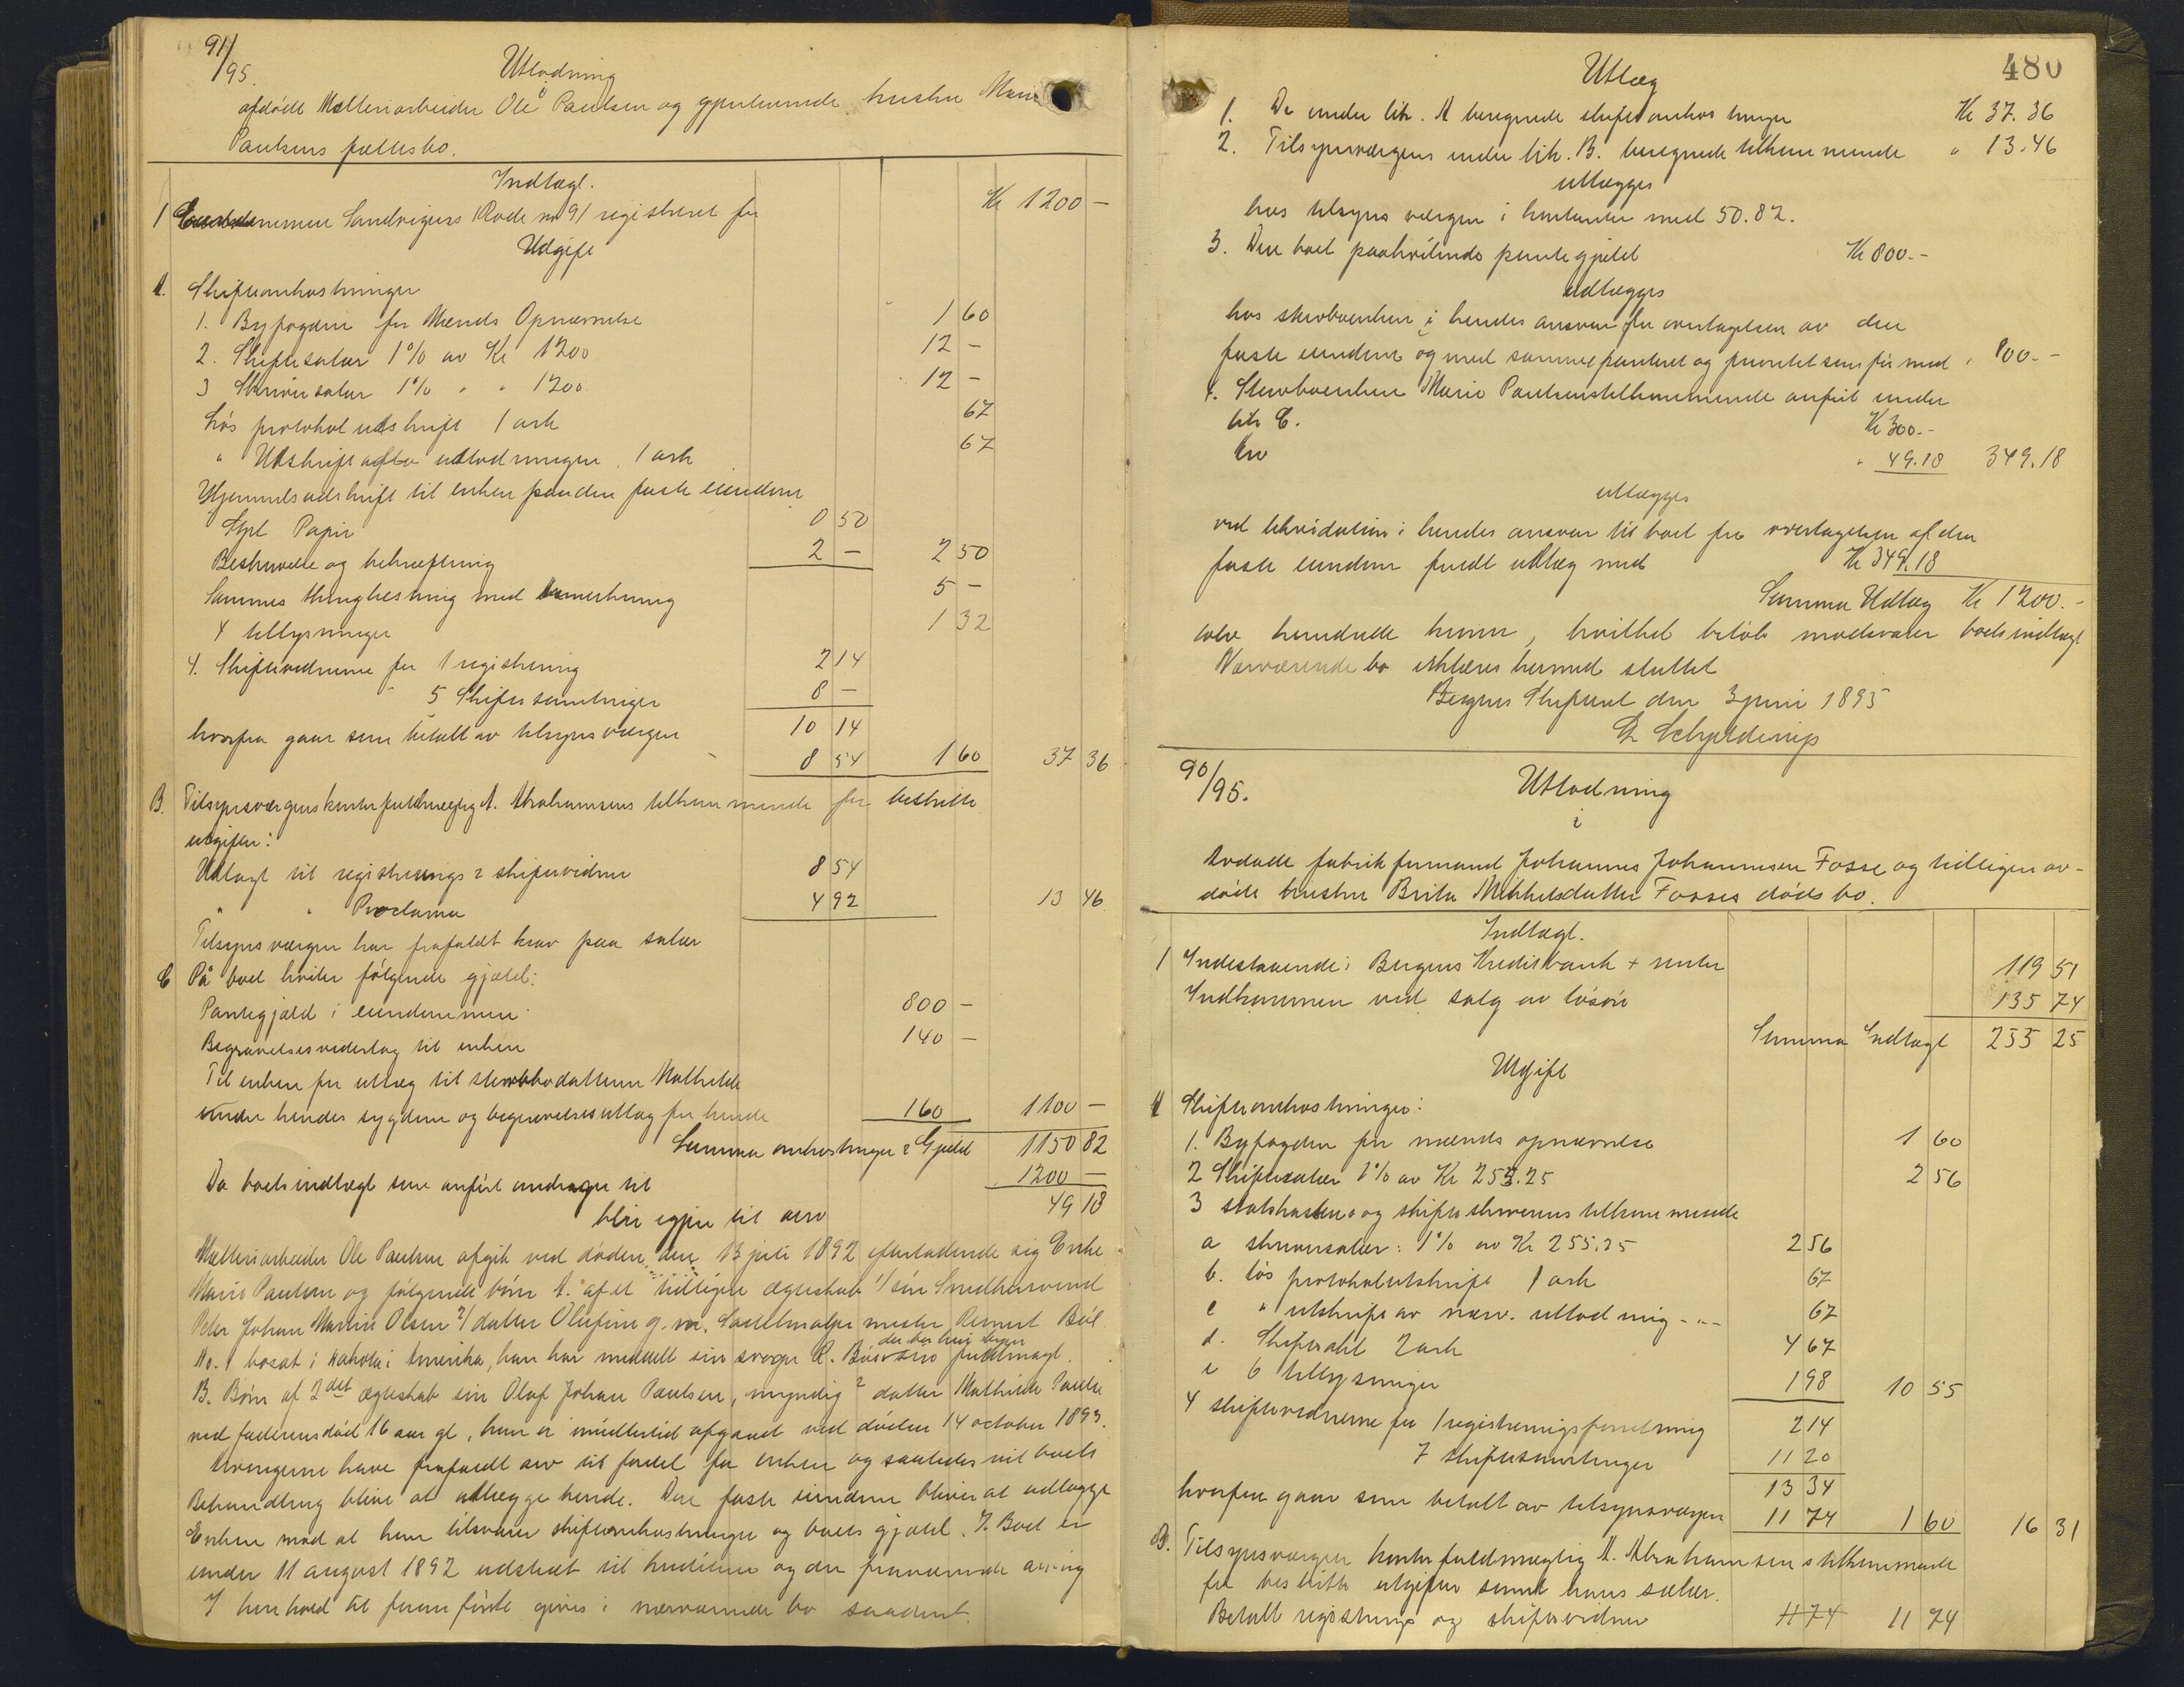 91/95.
Utlodning
i
afdøde Mølleriarbeider Ole Paulsen og gjenlevende hustru Marie
Paulsens fællesbo.
Indtægt.
1 Eiendommen Sandvigens Rode no 91 registreret for Kr 1200 -
Udgift
A. Skifteomkostninger
1. Byfogden for Mænds Opnævnelse 1 60
2. Skiftesalær 1% av Kr 1200 12 -
3 Skriversalær 1% " " 1200 12 -
Løs protokol udskrift 1 ark 67
" Udskrift af udlodningen 1 ark 67
Hjemmelsudskrift til enken paa den faste eiendom
Stpl Papir 0 50
Beskrivelse og bekræftning 2 - 2 50
Sammes thinglæsning med anmerkning 5 -
4 tillysninger 1 32
4. Skiftevidnerne for 1 registrering 2 14
" 5 Skiftesamlinger 8 -
10 14
hvorfra gaar som betalt av tilsynsværgen 8 54 1 60 37 36
B. Tilsynsværgens kontorfuldmægtig A. Abrahamsens tilkommende for bestridte
utgifter:
Udlagt til registrerings & skiftevidner 8 54
" " Proclama 4 92 13 46
Tilsynsværgen har frafaldt krav paa salær
C På boet hviler følgende gjæld:
Pantegjæld i eiendommen 800 -
Begravelsesvederlag til enken 140 -
Til enken for utlæg til stervbodatteren Mathilde
under hendes sygdom og begravelsesutlæg for hende 160 1100 -
Summa omkostninger & Gjæld 1150 82
Da boets indtægt som anført andrager til 1200 -
blir igjen til arv 49 18
Mølleriarbeider Ole Paulsen afgik ved døden den 13 juli 1892 efterladende sig Enke
Marie Paulsen og følgende børn A. af et tidligere ægteskab 1/ søn Smedhaandv
Peder Johan Martin Olsen 2/ datter Olufine g. m. Sadelmager mester Rasmus Bøe
No. 1 bosat i Dakota i Amerika, han har meddelt sin svoger R. Bøe
der bor her i byen
fuldmagt.
B. Børn af 2det ægteskab søn Olaf Johan Paulsen, myndig 2 datter Mathilde Pauls
ved faderens død 16 aar gl, hun er imidlertid afgaaet ved døden 14 october 1893.
Arvingerne have frafaldt arv til fordel for enken og saaledes vil boets
Behandling blive at utlægge hende. Den faste eiendom bliver at udlægge
Enken mod at hun tilsvarer skifteomkostninger og boets gjæld. I Boet er
under 11 august 1892 udstedt til kreditorer og den fraværende arving
I henhold til foranførte gives i nærværende bo saadant
480
Utlæg
1. De under litr. A beregnede skifteomkostninger Kr 37.36
2. Tilsynsværgens under litr. B. beregnede tilkommende " 13.46
utlægges
hos tilsynsværgen i kontanter med 50.82.
3. Den boet paahvilende pantegjæld Kr 800.-
udlægges
hos stervboenken i hendes ansvar for overtagelsen av den
faste eiendom og med samme panteret og prioritet som før med " 800.-
4. Stervboenken Marie Paulsens tilkommende anført under
litr C. Kr 300.-
Arv " 49.18 349.18
utlægges
ved likvidation i hendes ansvar til boet for overtagelsen af den
faste eiendom fuldt utlæg med Kr 349.18
Summa Udlæg Kr 1200.-
tolv hundrede kroner, hvilket beløb modsvarer boets indtægt
Nærværende bo erklæres hermed sluttet
Bergens Skifteret den 3 juni 1895
E Schjelderup
90/95.
Utlodning
i
avdøde fabrikformand Johannes Johannesen Fosse og tidligere av-
døde hustru Brita Mikkelsdatter Fosses dødsbo.
Indtægt.
1 Indestaaende i Bergens Kreditbank + renter 119 51
Indkommen ved salg av løsøre 135 74
Summa Indtægt 255 25
Utgift
A Skifteomkostninger:
1. Byfogden for mænds opnævnelse 1 60
2 Skiftesalær 1% av Kr 255.25 2 56
3 statskassen og skifteskriverens tilkommende
a skriversalær: 1% av Kr 255.25 2 56
b. løs protokoludskrift 1 ark 67
c " utskrift av nærv. utlodning - " - 67
d. Skifteakt 2 ark 4 67
e 6 tillysninger 1 98 10 55
4 skiftevidnerne for 1 registreringsforretning 2 14
7 skiftesamlinger 11 20
13 34
hvorfra gaar som betalt av tilsynsværgen 11 74 1 60 16 31
B. Tilsynsværgen kontorfuldmægtig A. Abrahamsens tilkommende
for bestridte utgifter samt hans salær.
Betalt registrerings og skiftevidner 11 74 11 74